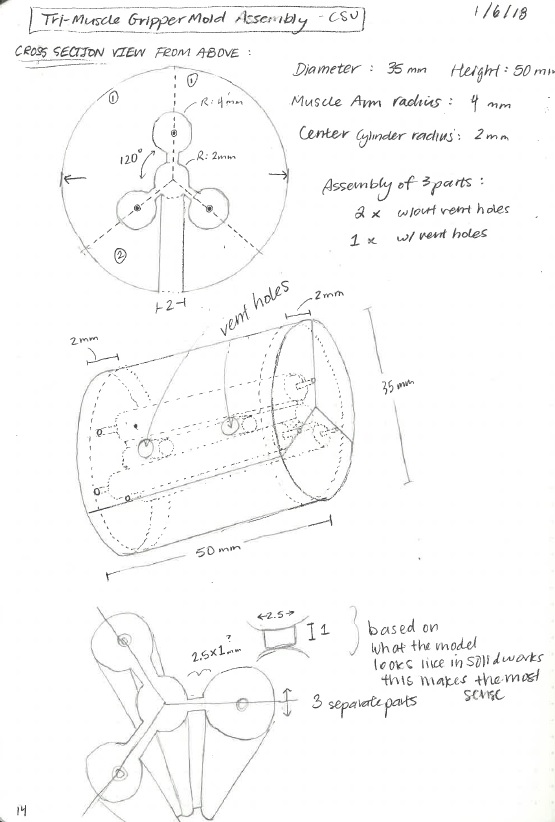 Tri-Muscle Gripper Mold Assembly - CSU
1/6/18
CROSS SECTION VIEW FROM ABOVE :
Diameter : 35 mm Height: 50 mm
Muscle Arm radius : 4 mm
Center Cylinder radius: 2mm
Assembly of 3 parts :
2 x w/out vent holes
1 x w/ vent holes
1
1
R: 4mm
120°
R: 2mm
2
2
vent holes
2mm
2mm
35 mm
50 mm
2.5
1
?
2.5x1mm
based on
what the model
looks like in solidworks
this makes the most
sense
3 separate parts
14